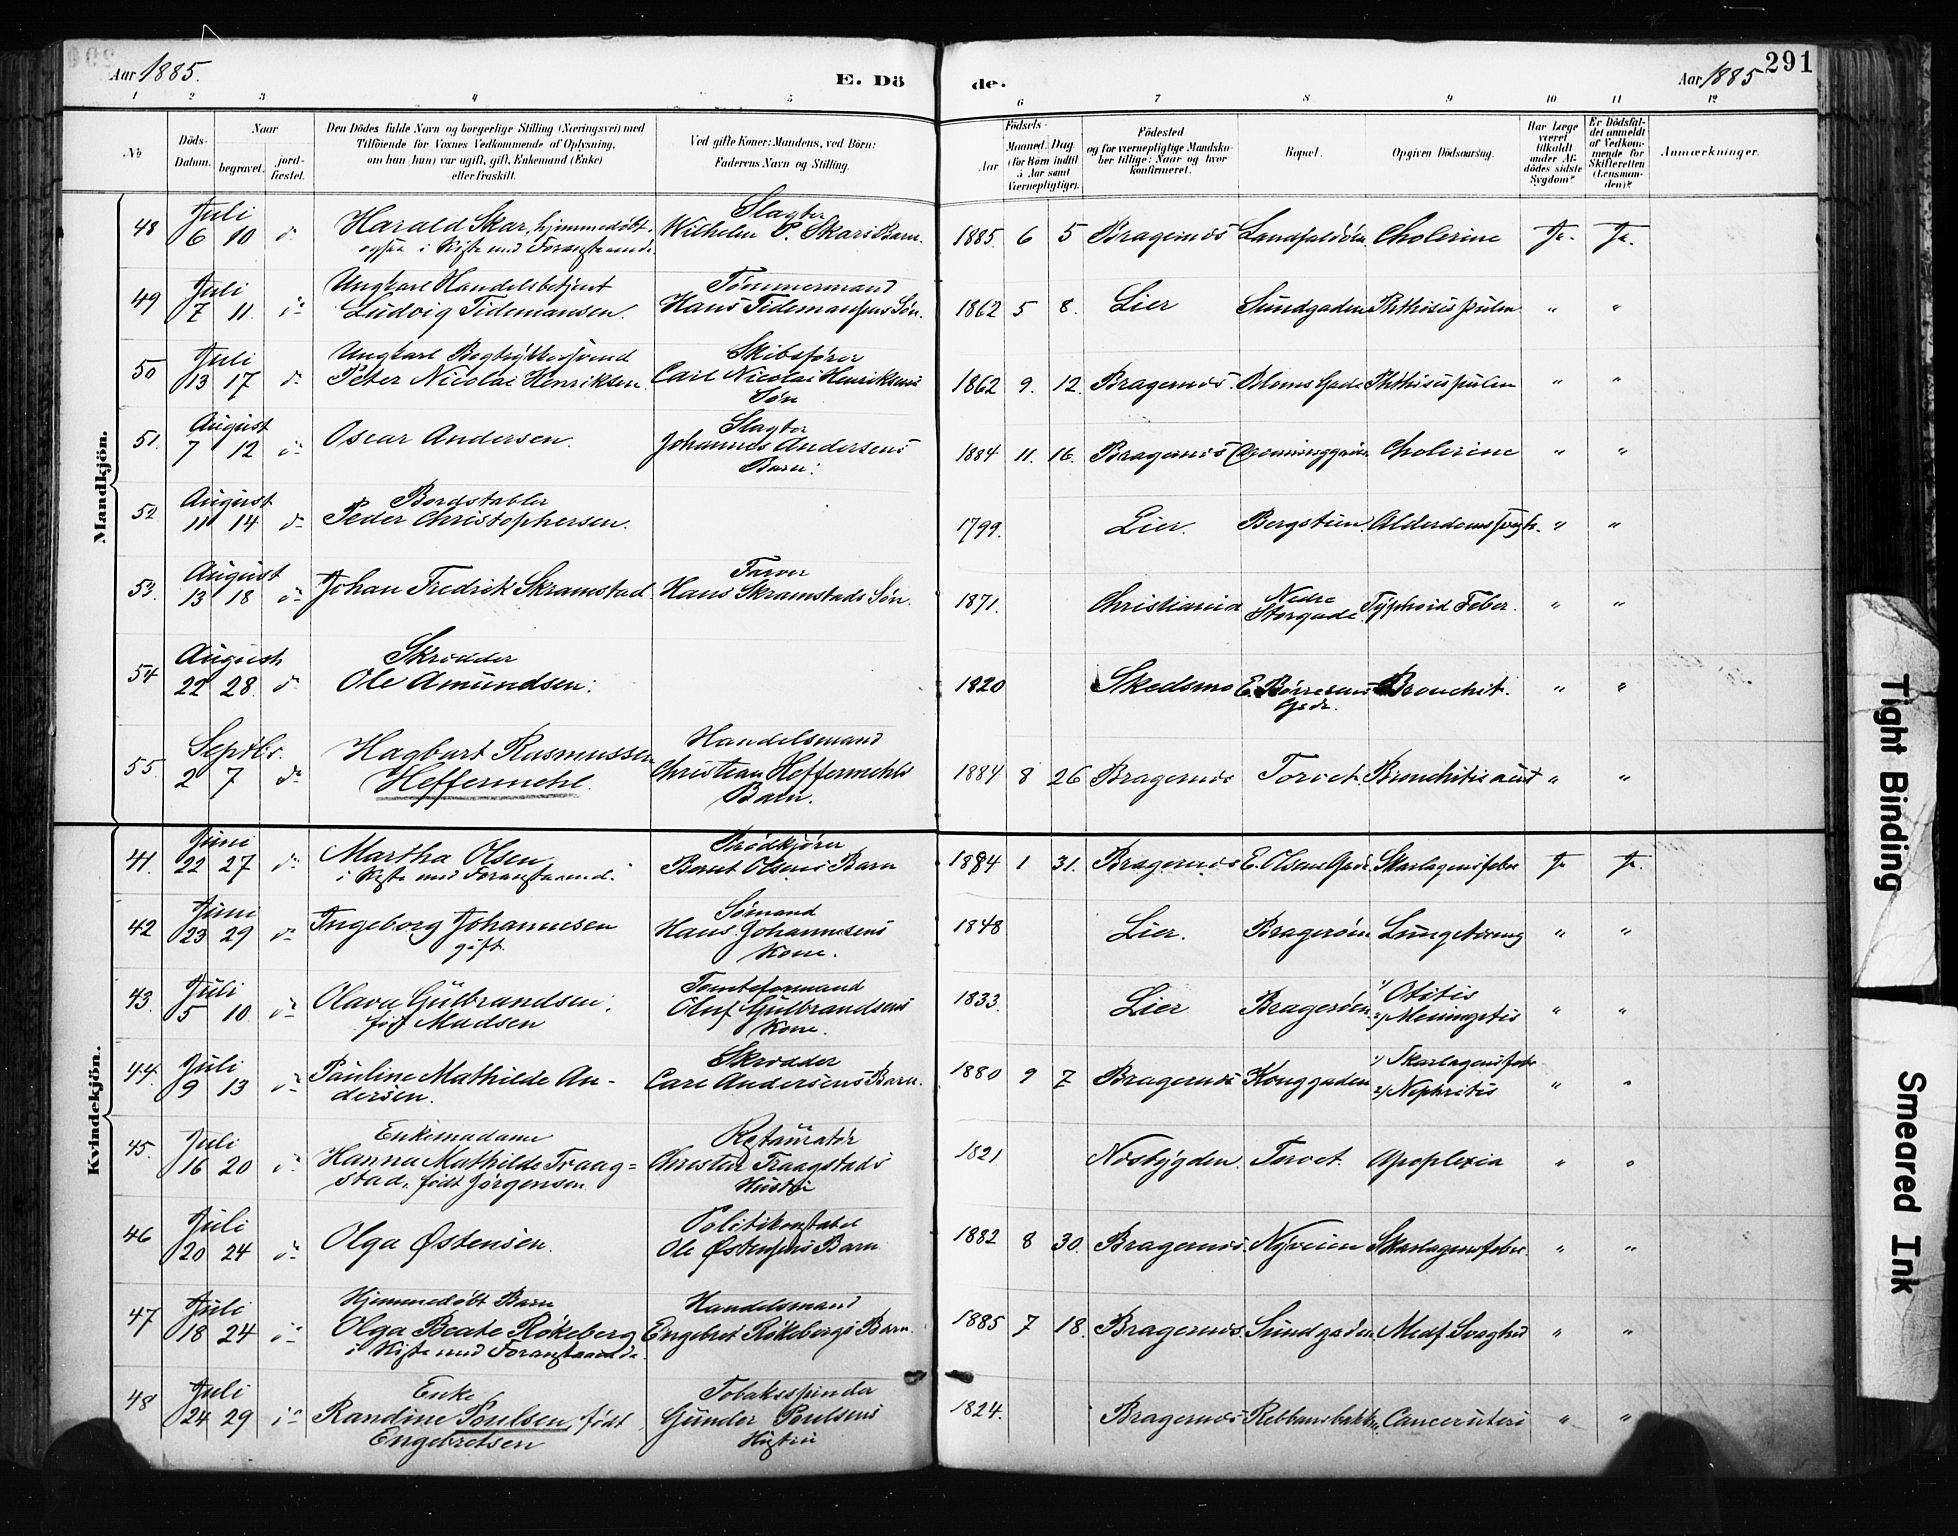 Aar 1885.
E. Dö
de.
Aar 1885
291
1 2 3 4 5 6 7 8 9 10 11 12
No
Döds-Datum.
Naar
begravet.
jord-fæstet.
Den Dödes fulde Navn og borgerlige Stilling (Næringsvei) med
Tilföiende for Voxnes Vedkommende af Oplysning,
om han (hun) var ugift, gift, Enkemand (Enke)
eller fraskilt.
Ved gifte Koner: Mandens, ved Börn:
Faderens Navn og Stilling.
Födsels-
Aar
Maaned. Dag.
(for Börn indtil
5 Aar samt
Værnepligtige).
Födested
og for værnepligtige Mandskaber tillige: Naar og hvor
konfirmeret.
Bopæl.
Opgiven Dödsaarsag.
Har Læge
været
tilkaldt
under Afdödes sidste
Sygdom?
Er Dödsfaldet anmeldt
af Vedkommende for
Skifteretten
(Lensmanden)?
Anmærkninger.
Mandkjön.
48 Juli 6 10 do Harald Skar, hjemmedøbt, Slagter Wilhelm P. Skars Barn. 1885. 6 5 Bragernes Landfaldøen Cholerine Ja. Ja.
i Kiste med Foranstaaende.
49 Juli 7 11. do Ungkarl Handelsbetjent Ludvig Tidemansen. Tømmermand Hans Tidemansens Søn. 1862 5 8. Lier Sundgaden Phthisis pulm " "
50 Juli 13 17 do Ungkarl Peter Nicolai Henriksen Skibsfører Carl Nicolai Henriksens Søn 1862 9. 12. Bragernes Bloms Gade Phthisis pulm " "
51. August 7 12 do Oscar Andersen. Slagter Johannes Andersens Barn. 1884 11. 16. Bragernes Cholerine " "
52 August 11 14 do Bordstabler Peder Christophersen. 1799. Lier. Bergstien. " "
53. August 13 18 do Johan Fredrik Skramstad Farver Hans Skramstads Søn. 1871. Christiania Nedre Storgade. Typhoid Feber. " "
54 August 22 28. do Skrædder Ole Amundsen. 1820 Skedsmo E. Børresens Gade. Bronchit. " "
55. Septbr. 2 7 do Hagbart Rasmussen Heffermehl. Handelsmand Christian Heffermehls Barn. 1884 8 26 Bragernes Torvet. Bronchitis acut " "
Kvindekjön.
41. Juni 22 27 do Martha Olsen, i Kiste med Foranstaaende. Brødkjører Bernt Olsens Barn 1884 1 31. Bragernes E. Olsens Gade Skarlagensfeber Ja Ja.
42 Juni 23 29 do Ingeborg Johannesen gift. Sømand Hans Johannesens Kone. 1848 Lier. Bragerøen " "
43. Juli 5 10 do Olava Gulbrandsen, født Madsen Tomteformand Oluf Gulbrandsens Kone. 1833. Lier Bragerøen 1) Otitis 2) Meningitis " "
44. Juli 9 13 do Pauline Mathilde Andersen. Skrædder Carl Andersens Barn. 1880 9 7 Bragernes Konggaden 1) Skarlagensfeber 2) Nephritis " "
45. Juli 16 20 do Enkemadame Hanna Mathilde Traagstad, født Jørgensen Restauratør Christian Traagstads Hustru 1821 Næsbygden. Torvet. Apoplexia " "
46 Juli 20 24 do Olga Østensen. Politikonstabel Ole Østensens Barn 1882 8 30. Bragernes. Nyveien Skarlagensfeber. " "
47 Juli 18 24 do Hjemmedøbt Barn Olga Beate Røkeberg i Kiste med Foranstaaende. Handelsmand Engebret Røkebergs Barn. 1885 7 18. Bragernes. Sundgaden Medf. Svaghed " "
48 Juli 24 29 do Enke Randine Poulsen, født Engebretsen Tobaksspinder Gunder Poulsens Hustru 1824. Bragernes Rebbansbakken Cancer uteri " "
Tight Binding
Smeared Ink